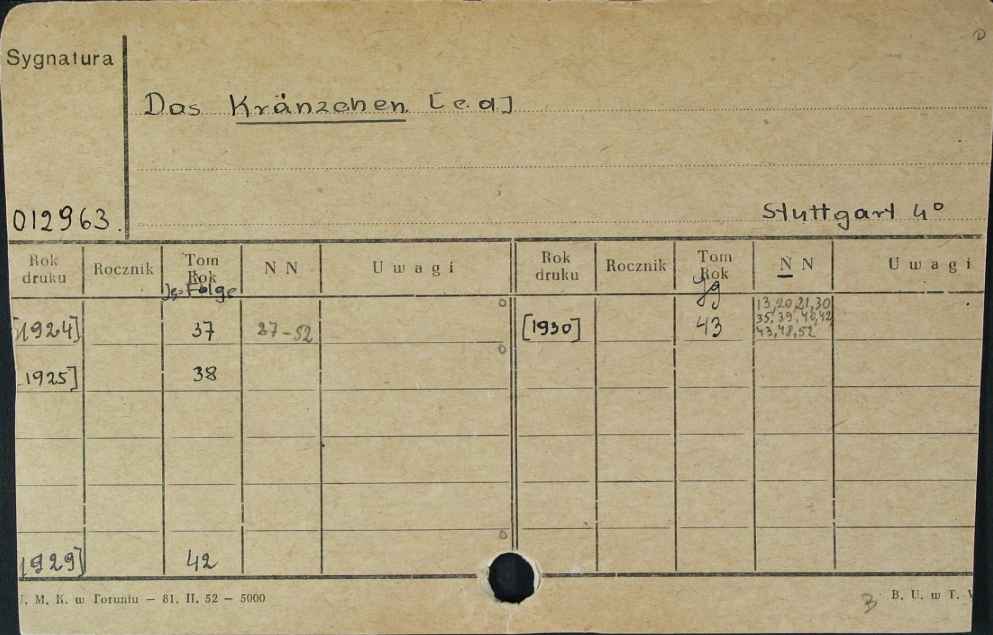 Sygnatura
Das Kränzchen [c.d]
012963.
Stuttgart 4°
Rok druku Rocznik Tom Rok N N Uwagi Rok druku Rocznik Tom Rok N N Uwagi
Jg. Folge Jg
[1924] 37 27-52 [1930] 43 13,20,21,30
35,39,40,42
43,48,52
1925] 38
1929] 42
M. K. w Toruniu — 81. II. 52 — 5000
B. U. w T.